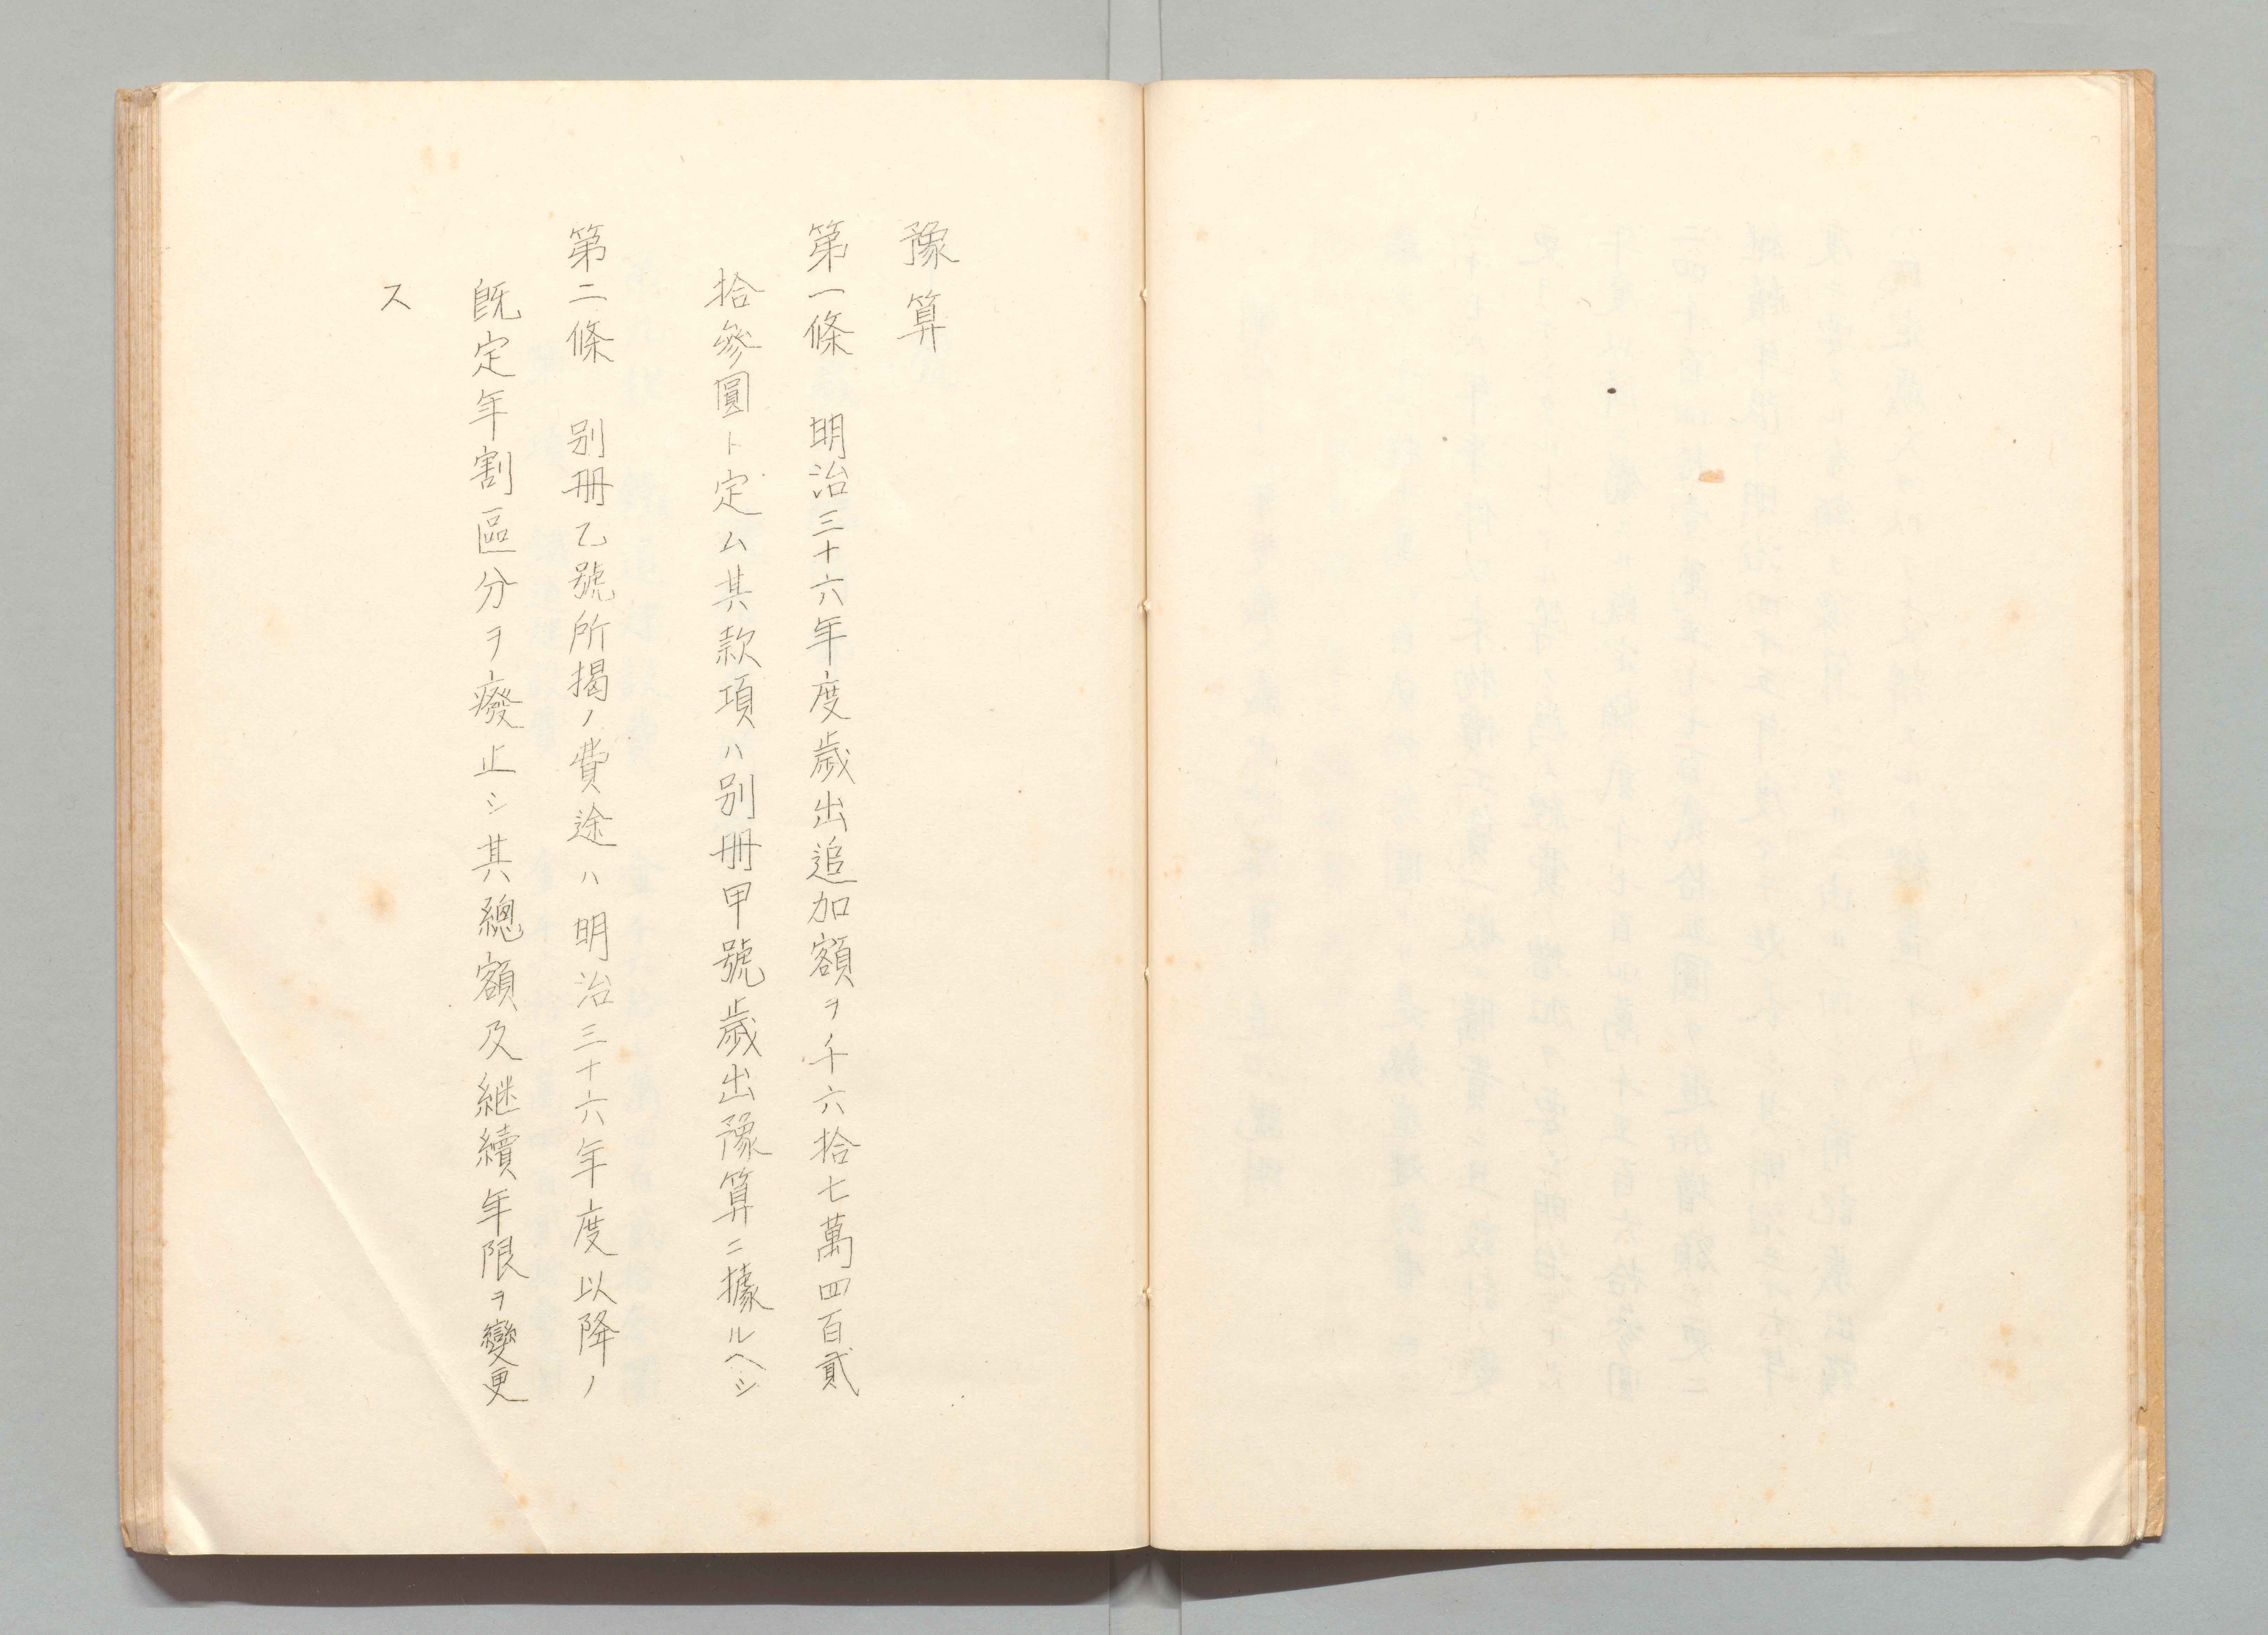 豫算
第一條　明治三十六年度歲出追加額ヲ千六拾七萬四百貳
拾參圓ト定ム其款項ハ別冊甲號歲出豫算ニ據ルヘシ
第二條　別冊乙號所揭ノ費途ハ明治三十六年度以降ノ
既定年割區分ヲ癈止シ其總額及継續年限ヲ變更
ス